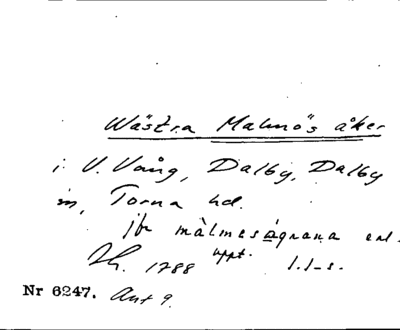 Wästra Malmös åker
i V. Vång, Dalby, Dalby
sn, Torna hd.
jfr målmesågrana enl.
uppt.
1788 l.l-s.
Nr 6247. Ant 9.